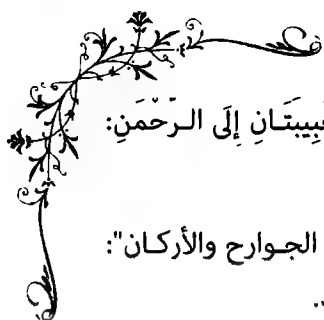 حَبِيبَتَـانِ إِلَى الـرَّحْمَنِ:
الجـوارح والأركـان":